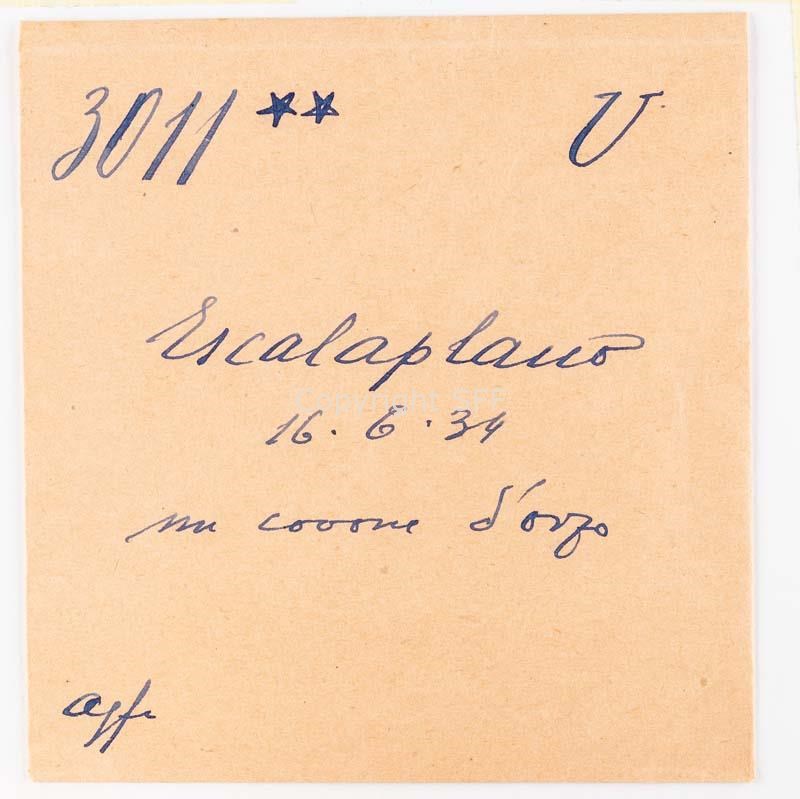 3011 ** U
Escalaplano
Copyright SFF
16. 6. 34
un covone d'orzo
agfa